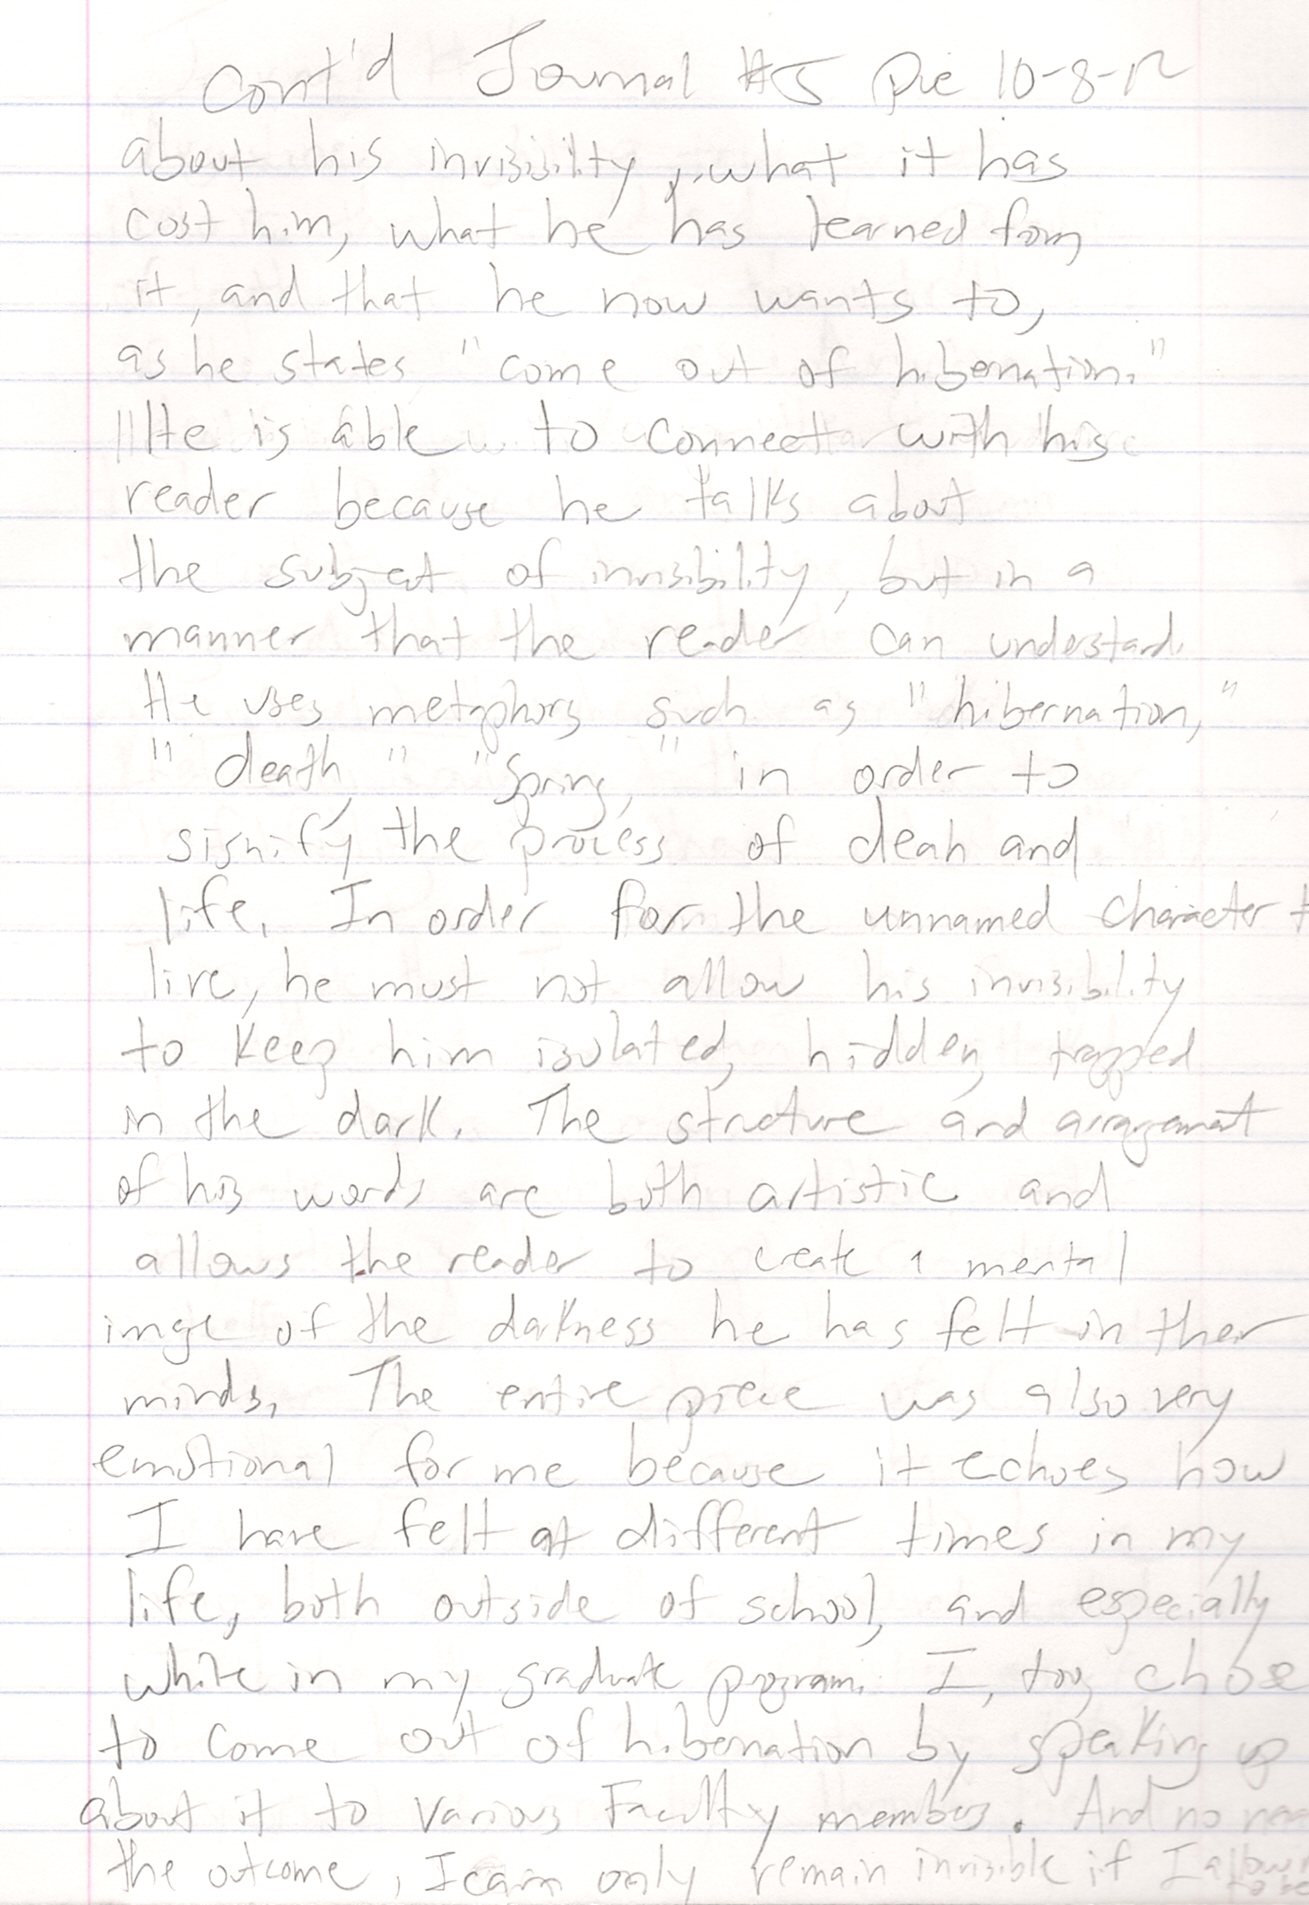 Cont'd Journal #5 Due 10-8-12
about his invisibility, what it has
cost him, what he has learned from
it, and that he now wants to,
as he states "come out of hibernation."
He is able to connect with his
reader because he talks about
the subject of invisibility, but in a
manner that the reader can understand.
He uses metaphors such as "hibernation,"
"death," "Spring," in order to
signify the process of deah and
life. In order for the unnamed character t
live, he must not allow his invisibility
to keep him isolated, hidden, trapped
in the dark. The structure and arragemant
of his words are both artistic and
allows the reader to create a mental
imge of the darkness he has felt in their
minds. The entire piece was also very
emotional for me because it echoes how
I have felt at different times in my
life, both outside of school, and especially
while in my graduate program. I, too, chose
to come out of hibernation by speaking up
about it to various Faculty members. And no
the outcome, I can only remain invisible if I allow
to be